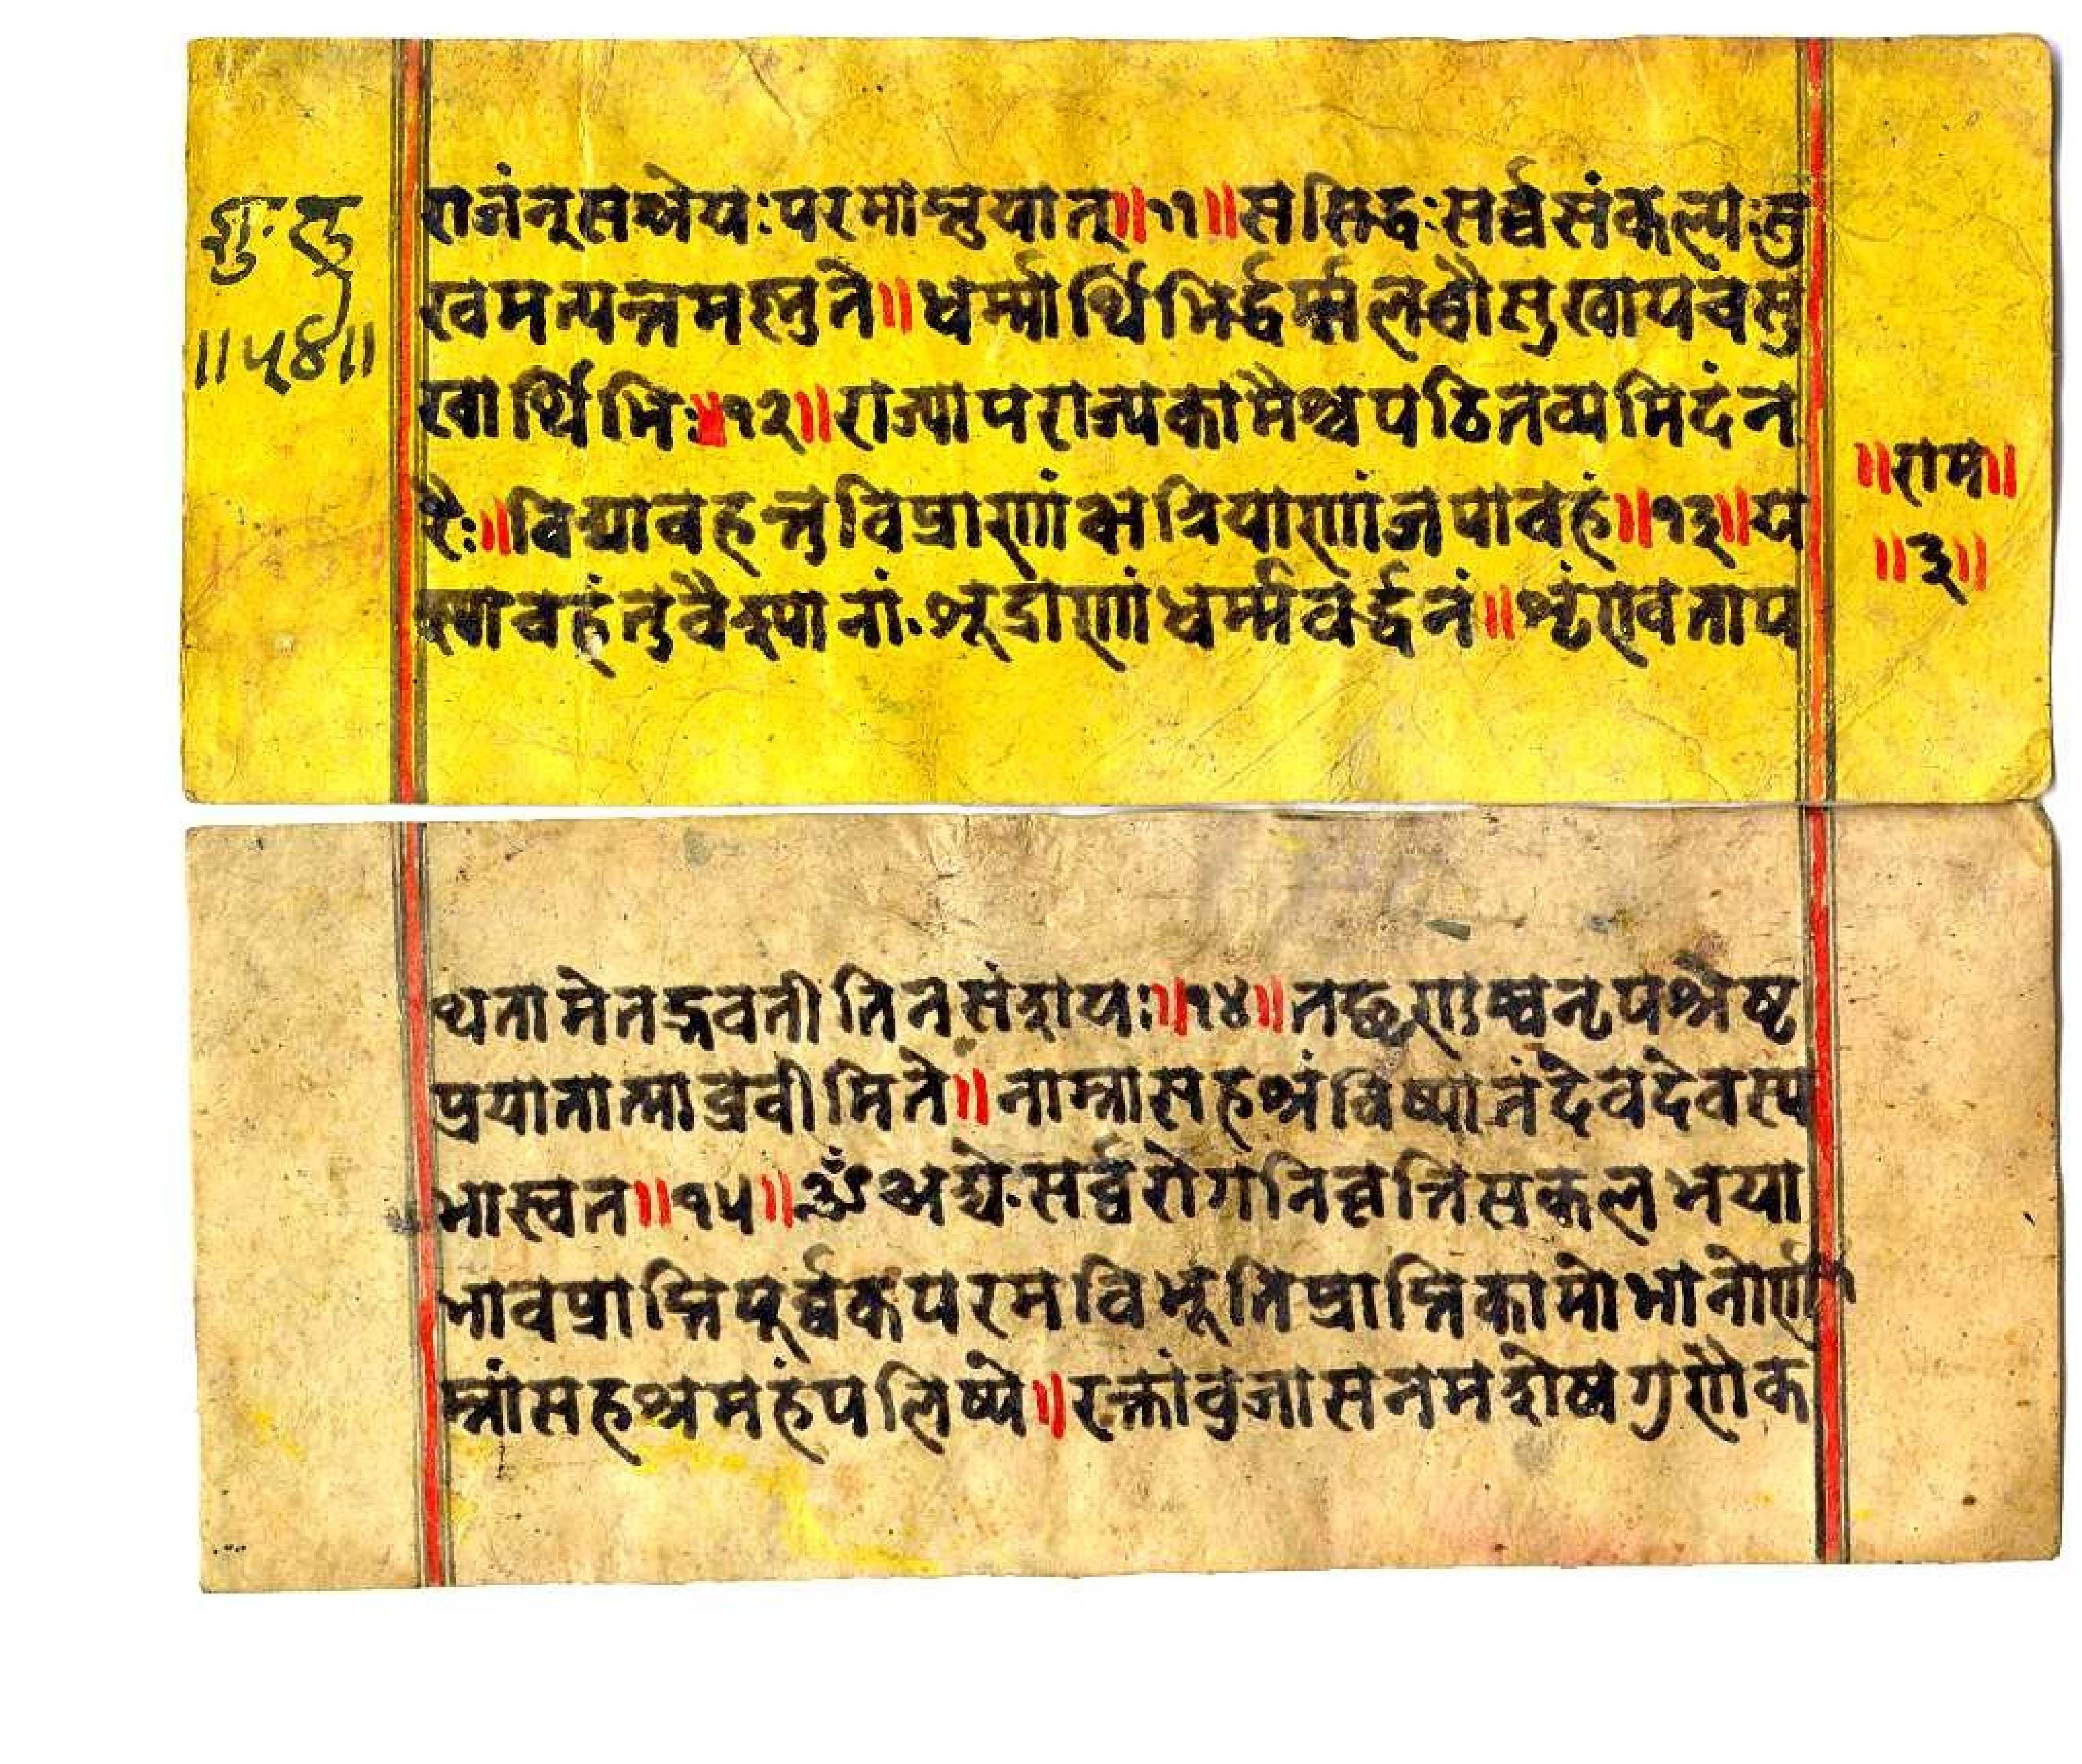 शु॰ लु
॥५४॥
राजंन् स श्रेयः परमाप्नुयात्॥११॥स सिद्धः सर्व्वसंकल्पः सु
खमत्यन्तमस्नुते॥धर्म्मार्थिभिर्द्धर्म्मलब्धौ सुखाय च सु
खार्थिभिः॥१२॥राज्याय राज्यकामैश्च पठितव्यमिदं न
रैः॥विद्यावहन्तु विप्राणां क्षत्रियाणां जयावहं॥१३॥प
श्वावहं तु वैश्यानां शूद्राणां धर्म्मवर्द्धनं॥शृंण्वतां प
॥राम॥
॥३॥
थतामेतद्भवतीति न संशयः॥१४॥तच्छृणुष्व नृपश्रेष्ट
प्रयातात्मा व्रवीमि ते॥नाम्नां सहश्रं विख्यातं देवदेवस्य
भास्वत॥१५॥ॐ अद्ये॰सर्व्वरोगनिवृत्ति सकलभया
भावप्राप्तिपूर्व्वक परमविभूतिप्राप्तिकामो भानोर्ण्णा
म्नां सहश्रमहं पलिष्ये॥रक्तांवुजासनमशेषगुणैक